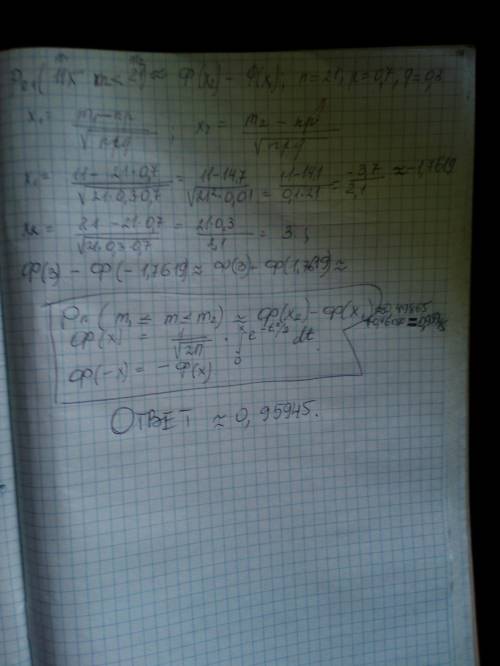 P₂₁(11 ≤ m < 21) ≈ Ф(x₂) - Ф(x₁); n=21, p=0,7, q=0,3
x₁ = (m₁ - np)/√(npq) ; x₂ = (m₂ - np)/√(npq)
x₁ = (11 - 21·0,7)/√(21·0,3·0,7) = (11-14,7)/√(21²·0,01) = (11-14,7)/(0,1·21) = (-3,7)/(2,1) ≈ -1,7619
x₂ = (21 - 21·0,7)/√(21·0,3·0,7) = (21·0,3)/(2,1) = 3 ;
Ф(3) - Ф(-1,7619) ≈ Ф(3)- Ф(1,7619) ≈
Pn(m₁ ≤ m < m₂) ≈ Ф(x₂) - Ф(x₁) ≈0,49865
Ф(x) = 1/√(2П) · ∫₀ˣ e^(-t²/2) dt
Ф(-x) = - Ф(x)
ОТВЕТ ≈ 0,95945.